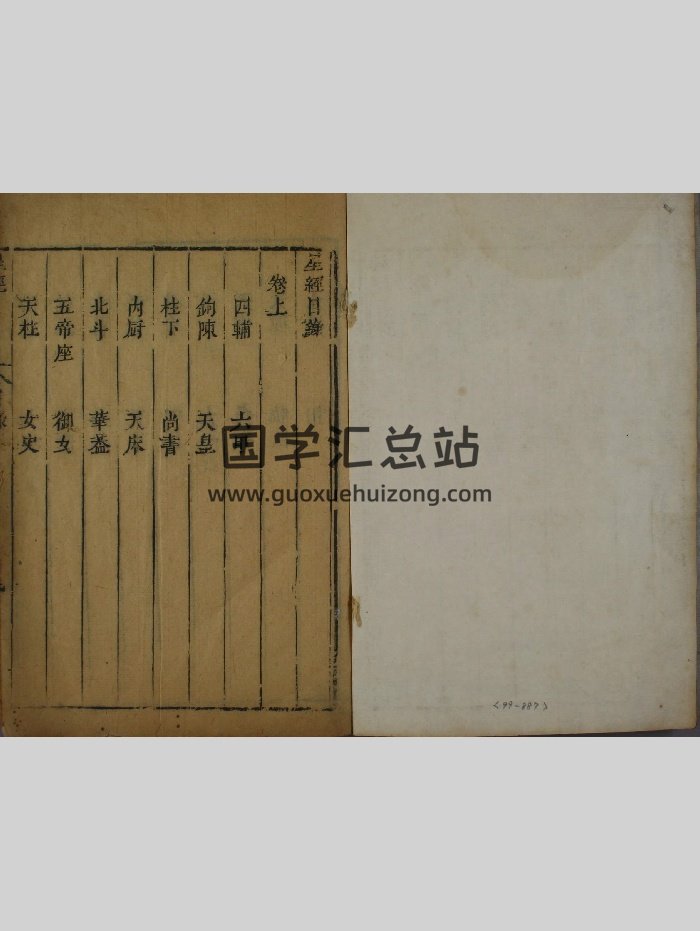 星經目錄
卷上
四輔 六甲
鉤陳 天皇
柱下 尚書
內厨 天床
北斗 華葢
五帝座 御女
天柱 女史
星經
国学汇总站
www.guoxuehuizong.com